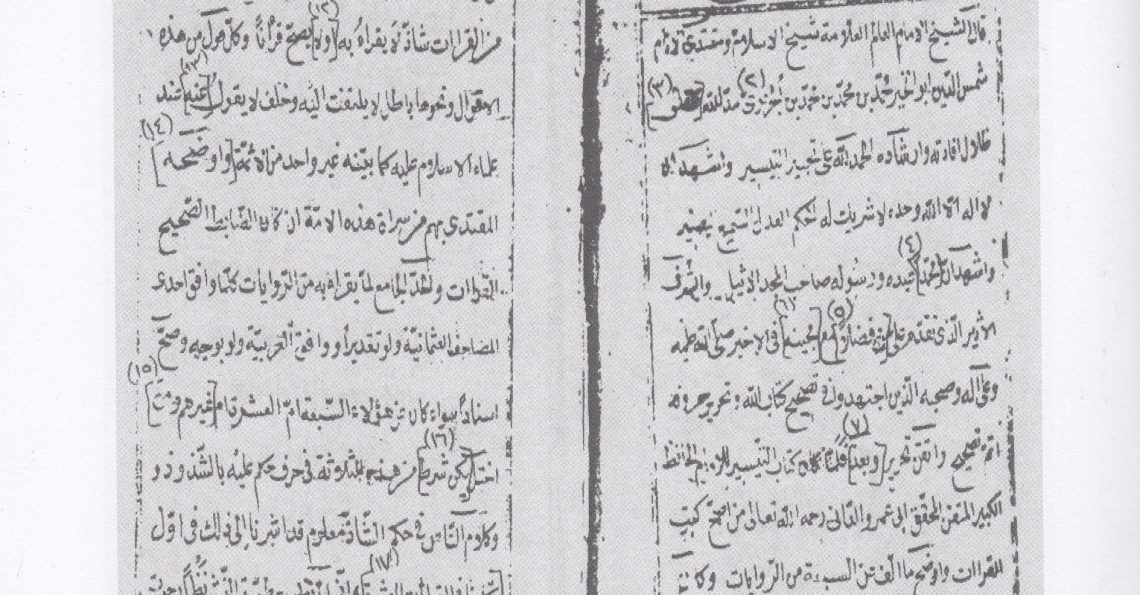 قال الشيخ الامام العالم العلامة شيخ الاسلام ومقتدى الانام
شمس الدين ابو الخير محمد بن محمد بن محمد بن الجزري (٢) مد الله (٣)
ظلال افادته وارشاده الحمد لله على تحبير التيسير واشهد ان
لا اله الا الله وحده لا شريك له الحكم العدل السميع بصير
واشهد ان محمدا (٤) عبده ورسوله صاحب المجد الاثيل والشرف
الاثير الذى تقدم على من فضلا (٥) مع مجيئه (٦) فى الاخير صلى الله عليه
وعلى آله وصحبه الذين اجتهدوا فى تصحيح كتاب الله وتحرير حروفه
اتم تصحيح واتقن تحرير وبعد (٧) فلما كان كتاب التيسير للامام الحافظ
الكبير المتقن المحقق ابى عمرو الدانى رحمه الله تعالى من اصح كتب
القراات واوضح ما الف عن السبعة من الروايات وكان
من القراات شاذ لا يقرا به (١٢) ولا يصح قرآنا وكل قول من هذه
الاقوال ونحوها باطل لا يلتفت اليه وخلف لا يقول (١٣) عنه عند
علماء الاسلام عليه كما بينه غير واحد من الائمة واوضحه (١٤)
المقتدى بهم من سراة هذه الامة ان كان الضابط الصحيح
القراات والحد الجامع لما يقرا به من الروايات كلما وافق احدى
المصاحف العثمانية ولو تقديرا ووافق العربية ولو بوجه وصح
اسنادا سواء كان عن هؤلاء السبعة ام العشرة ام غيرهم ومتى (١٥)
اختل ركن شرط (١٦) من هذه الثلاثة فى حرف حكم عليه بالشذوذ و
وكلام الناس فى حكم الشاذ معلوم قد اشرنا الى ذلك فى اول
(١٧)